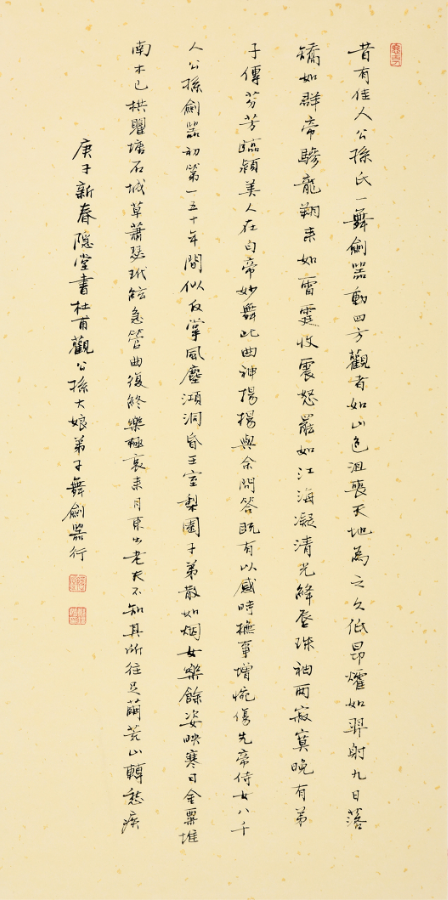 昔有佳人公孫氏一舞劍器動四方觀者如山色沮喪天地為之久低昂㸌如羿射九日落
矯如群帝驂龍翔来如雷霆收震怒罷如江海凝清光絳唇珠袖兩寂寞晚有弟
子傳芬芳臨潁美人在白帝妙舞此曲神揚揚與余問答既有以感時撫事增惋傷先帝侍女八千
人公孫劍器初第一五十年間似反掌風塵澒洞昏王室梨園子弟散如烟女樂餘姿映寒日金粟堆
南木已拱瞿塘石城草蕭瑟玳筵急管曲復終樂極哀来月東出老夫不知其所往足繭荒山轉愁疾
庚子新春隱堂書杜甫觀公孫大娘弟子舞劍器行